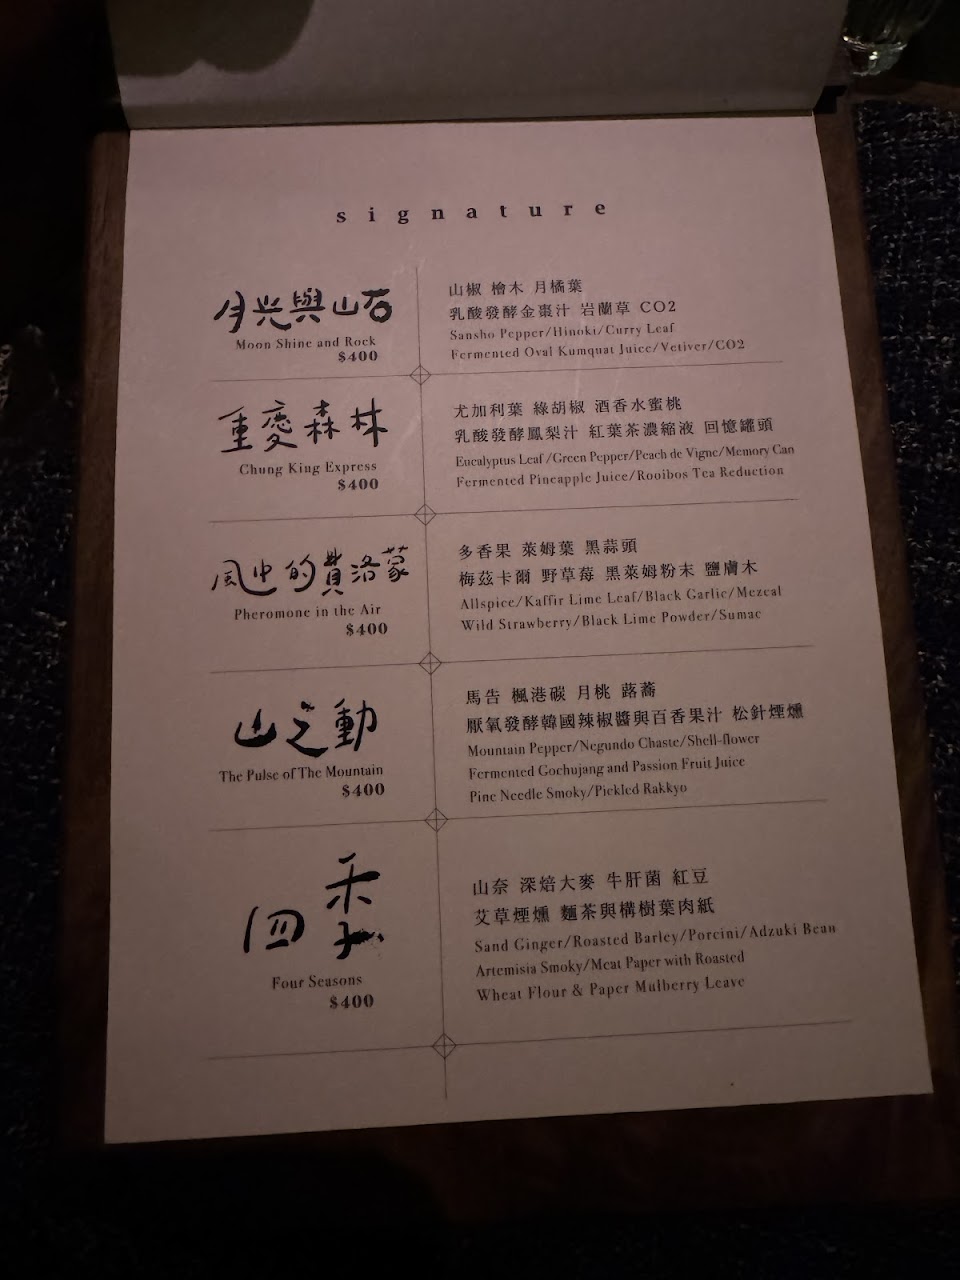 signature
月光與山石
Moon Shine and Rock
$400
山椒 檜木 月橘葉
乳酸發酵金棗汁 岩蘭草 CO2
Sansho Pepper/Hinoki/Curry Leaf
Fermented Oval Kumquat Juice/Vetiver/CO2
重慶森林
Chung King Express
$400
尤加利葉 綠胡椒 酒香水蜜桃
乳酸發酵鳳梨汁 紅葉茶濃縮液 回憶罐頭
Eucalyptus Leaf/Green Pepper/Peach de Vigne/Memory Can
Fermented Pineapple Juice/Rooibos Tea Reduction
風中的費洛蒙
Pheromone in the Air
$400
多香果 萊姆葉 黑蒜頭
梅茲卡爾 野草莓 黑萊姆粉末 鹽膚木
Allspice/Kaffir Lime Leaf/Black Garlic/Mezcal
Wild Strawberry/Black Lime Powder/Sumac
山之動
The Pulse of The Mountain
$400
馬告 楓港碳 月桃 蕗蕎
厭氧發酵韓國辣椒醬與百香果汁 松針煙燻
Mountain Pepper/Negundo Chaste/Shell-flower
Fermented Gochujang and Passion Fruit Juice
Pine Needle Smoky/Pickled Rakkyo
四季
Four Seasons
$400
山奈 深焙大麥 牛肝菌 紅豆
艾草煙燻 麵茶與構樹葉肉紙
Sand Ginger/Roasted Barley/Porcini/Adzuki Bean
Artemisia Smoky/Meat Paper with Roasted
Wheat Flour & Paper Mulberry Leave